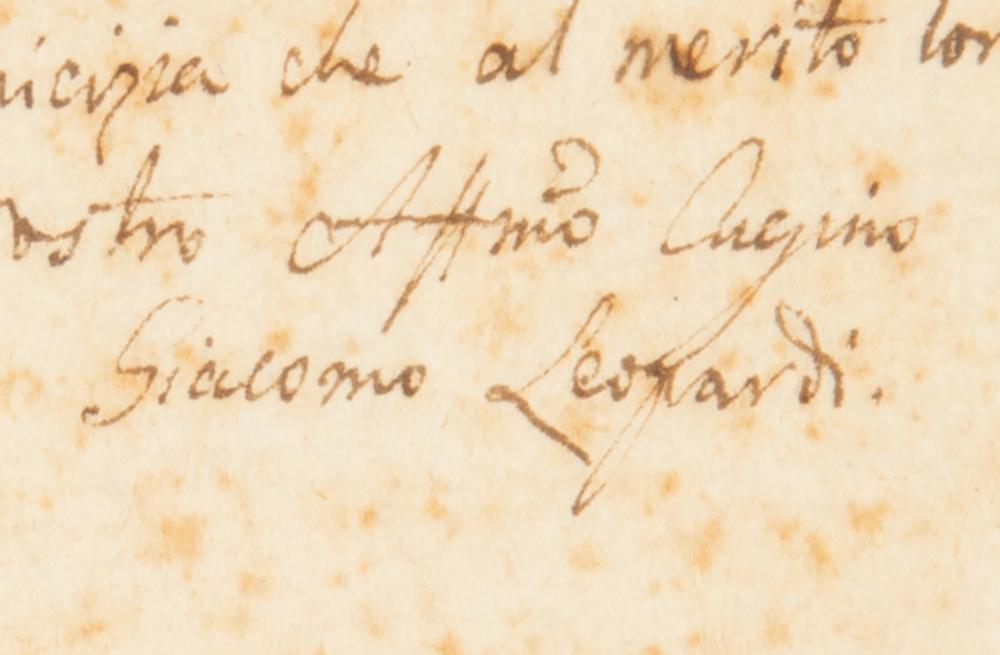 micizia che al merito lor
Vostro Affmo Cugino
Giacomo Leopardi.